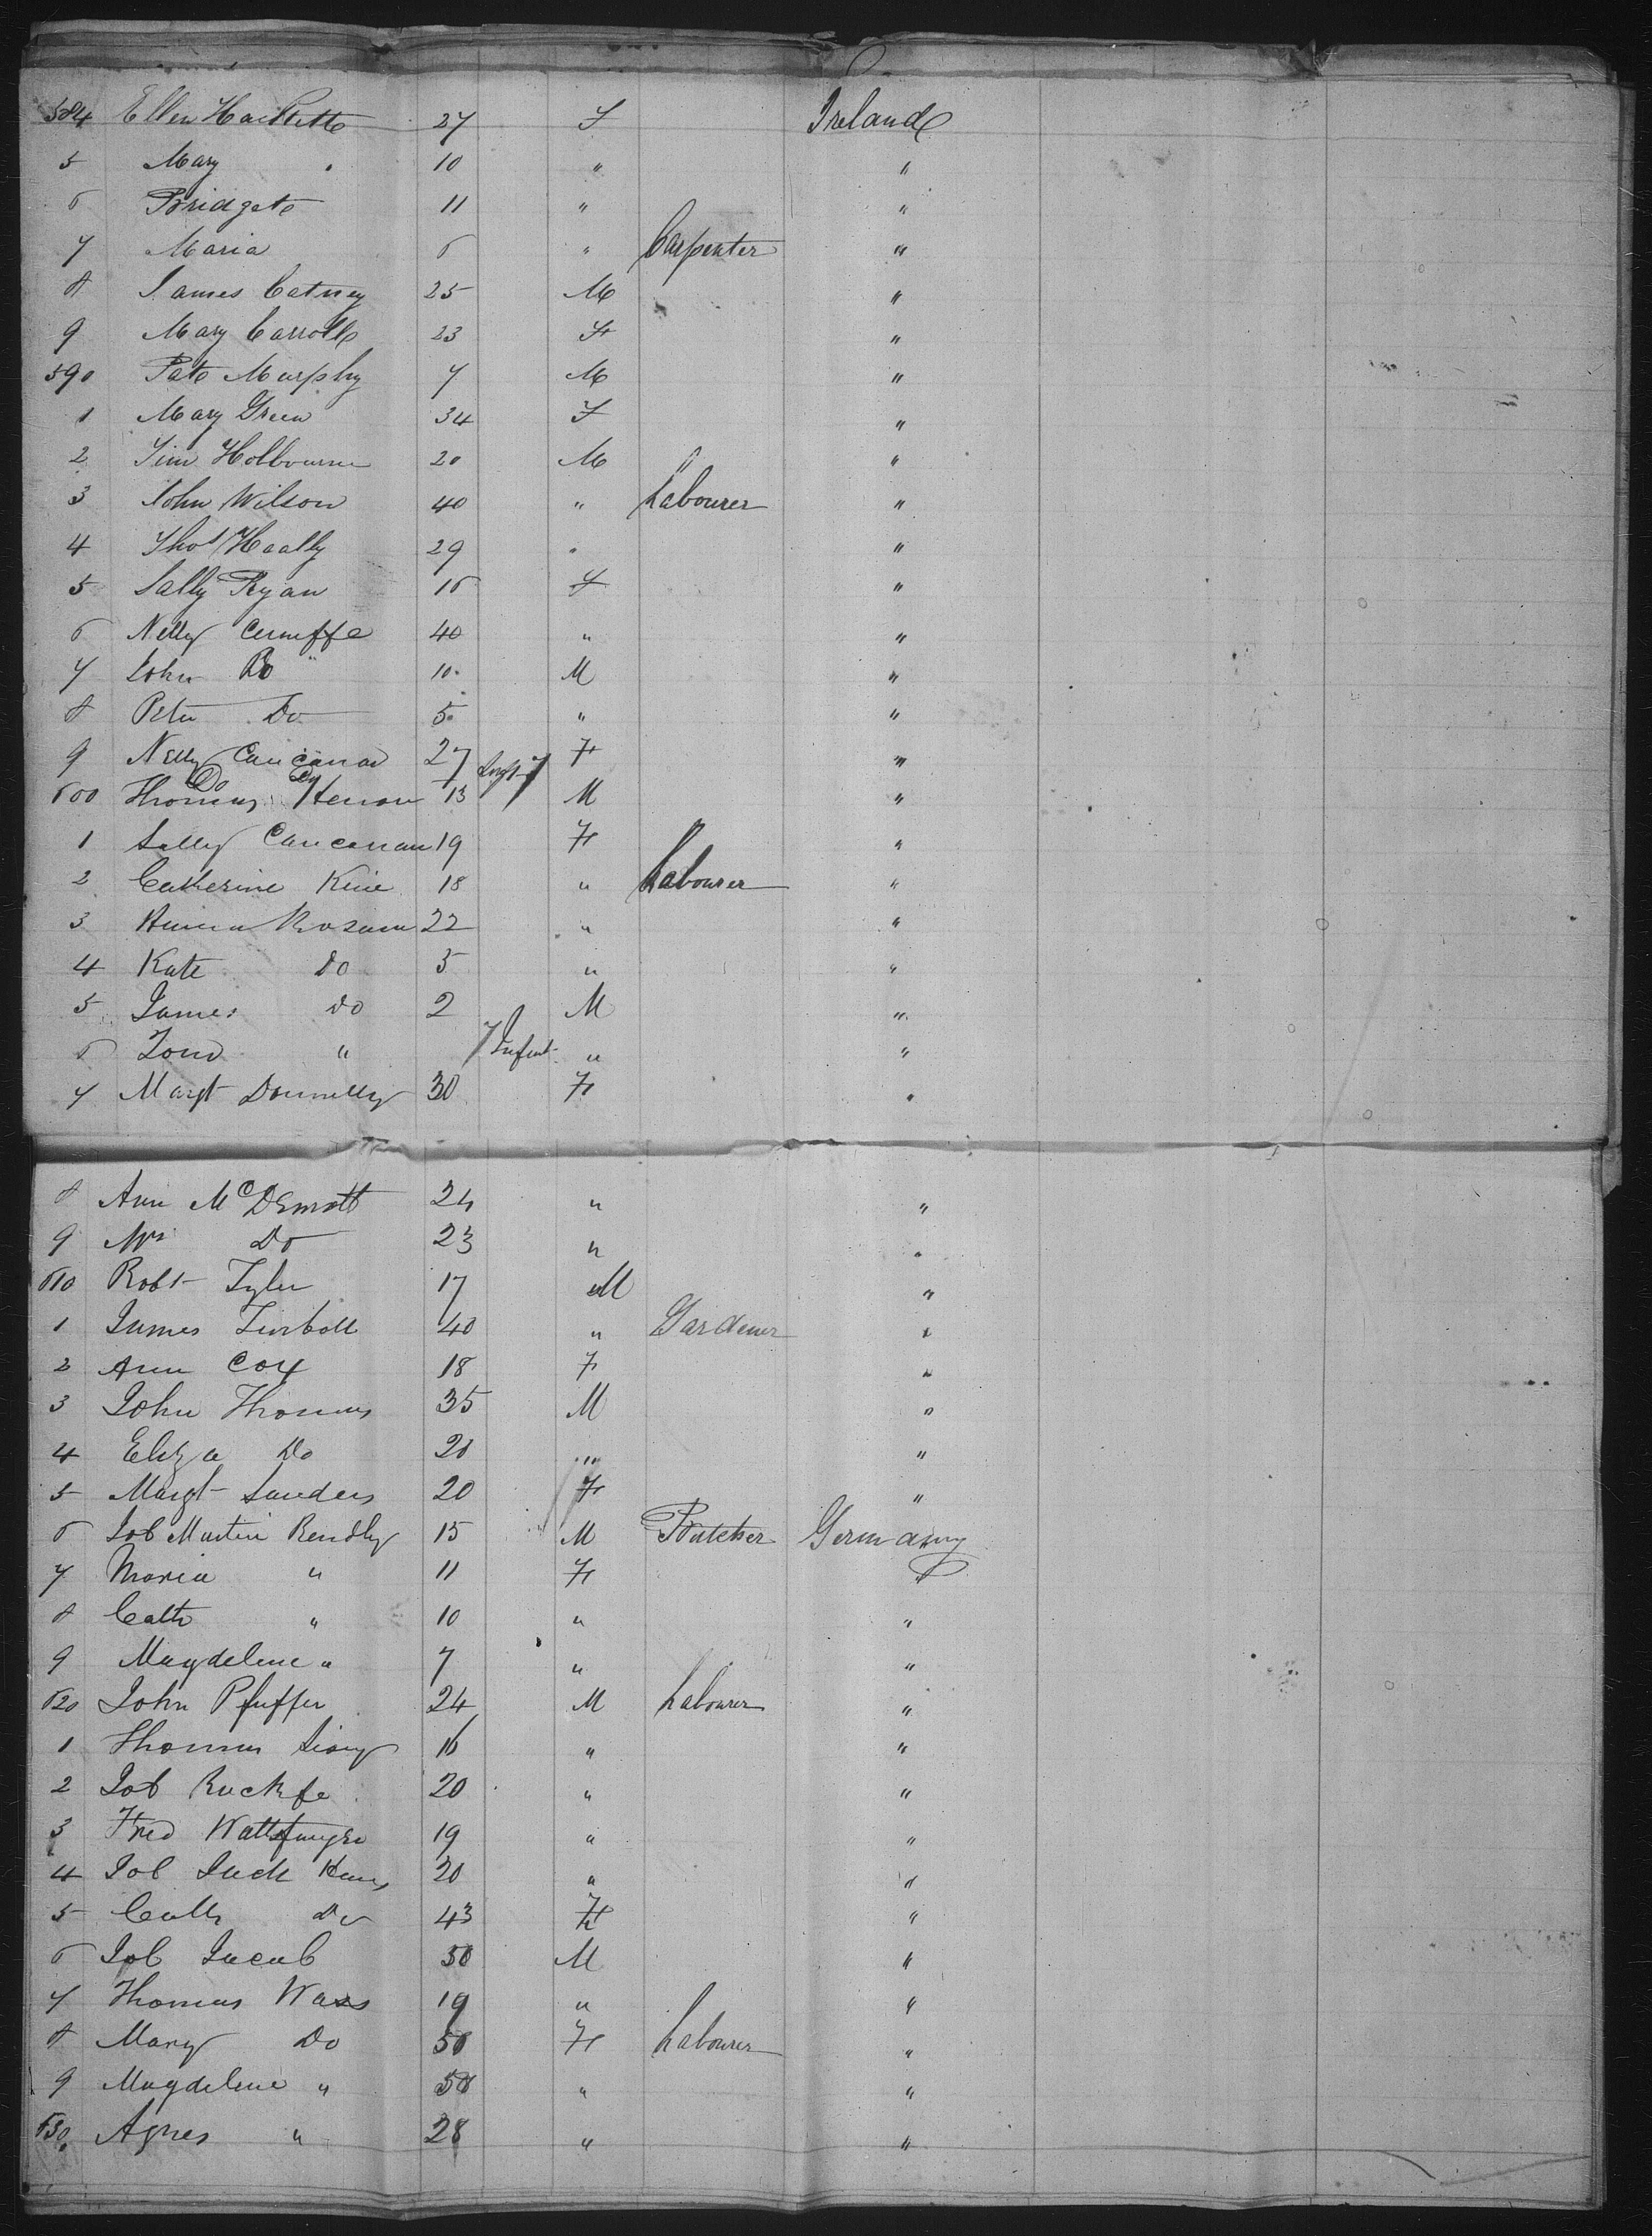 584 Ellen Hackette 27 F Ireland
5 Mary " 10 " "
6 Bridgete 11 " "
7 Maria 6 " Carpenter "
8 James Catney 25 M "
9 Mary Carroll 23 F "
590 Pate Murphy 7 M "
1 Mary Green 34 F "
2 Jim Holbourne 20 M "
3 John Wilson 40 " Labourer "
4 Thos Heally 29 " "
5 Sally Ryan 16 F "
6 Nelly 40 " "
7 John Do 10 M "
8 Peter Do 5 " "
9 Nelly Cancanon 27 F "
600 Thomas 13 M "
1 Sally Cancanan 19 F "
2 Catherine 18 " Labourer "
3 22 " "
4 Kate Do 5 " "
5 James Do 2 M "
6 " Infant " "
7 Margt Donnelly 30 F "
8 Ann McDermott 24 " "
9 Mrs Do 23 " "
610 Robt Tyler 17 M "
1 James 40 " Gardener "
2 Ann Cox 18 F "
3 John Thomas 35 M "
4 Eliza Do 28 " "
5 Margt Sanders 20 F "
6 Job Martin Rendly 15 M Butcher Germany
7 Maria " 11 F "
8 Cath " 10 " "
9 Magdelene " 7 " "
620 John Pfuffer 24 M Labourer "
1 Thomas 16 " "
2 Job Ruckfe 20 " "
3 Fred 19 " "
4 Job 20 " "
5 Cath Do 43 F "
6 Job Jacub 50 M "
7 Thomas Wass 19 " "
8 Mary Do 50 F Labourer "
9 Magdelene " 58 " "
630 Agnes " 28 " "